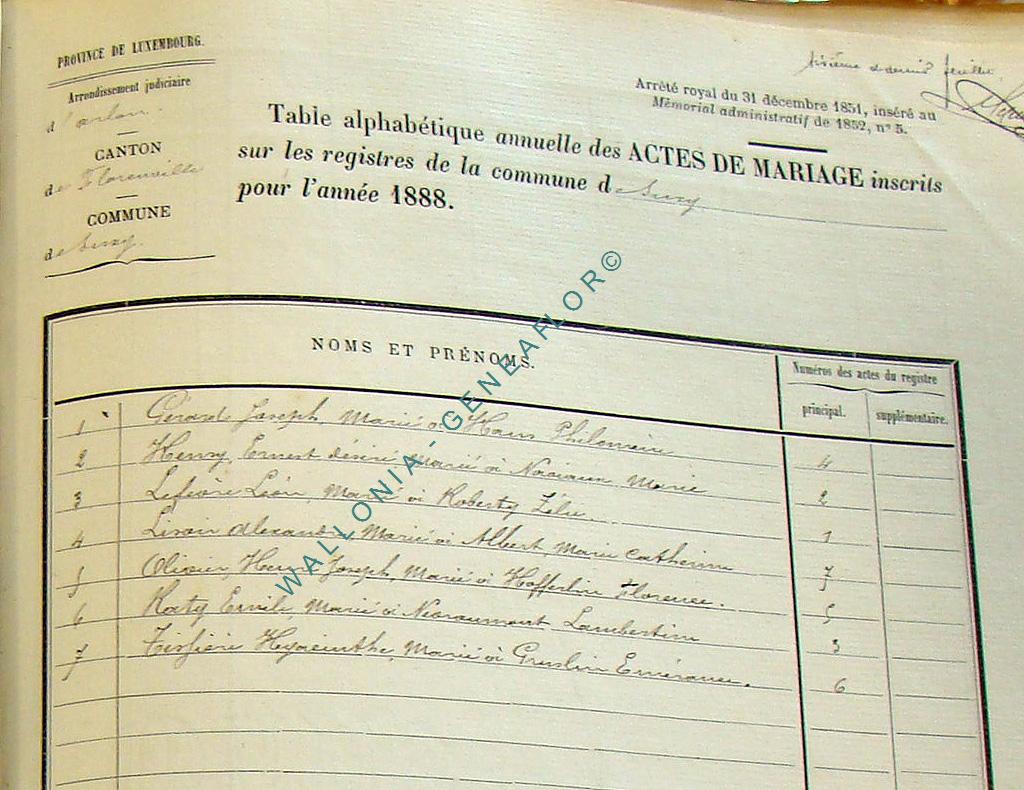 PROVINCE DE LUXEMBOURG.
Arrondissement judiciaire
d'arlon.
CANTON
de Florenville
COMMUNE
de Suxy.
Arrêté royal du 31 décembre 1851, inséré au
Mémorial administratif de 1852, n° 5.
Table alphabétique annuelle des ACTES DE MARIAGE inscrits
sur les registres de la commune de Suxy
pour l'année 1888.
NOMS ET PRÉNOMS.
Numéros des actes du registre
principal. supplémentaire.
1 Gérard Joseph, Marié à Philomène 4
2 Henry, Ernest désiré Marié à Marie 2
3 Lefèvre Léon, Marié à Roberty Zélie 1
4 Alexandre Marié à Albert Marie Catherine 7
5 Olivier, Henri Joseph, Marié à Hofferlin Florence. 5
6 Roty Emile, Marié à Neuraumont Lambertine 3
7 Hyacinthe, Marié à Gruslin Emérance. 6
WALLONIA - GENEAFLOR©